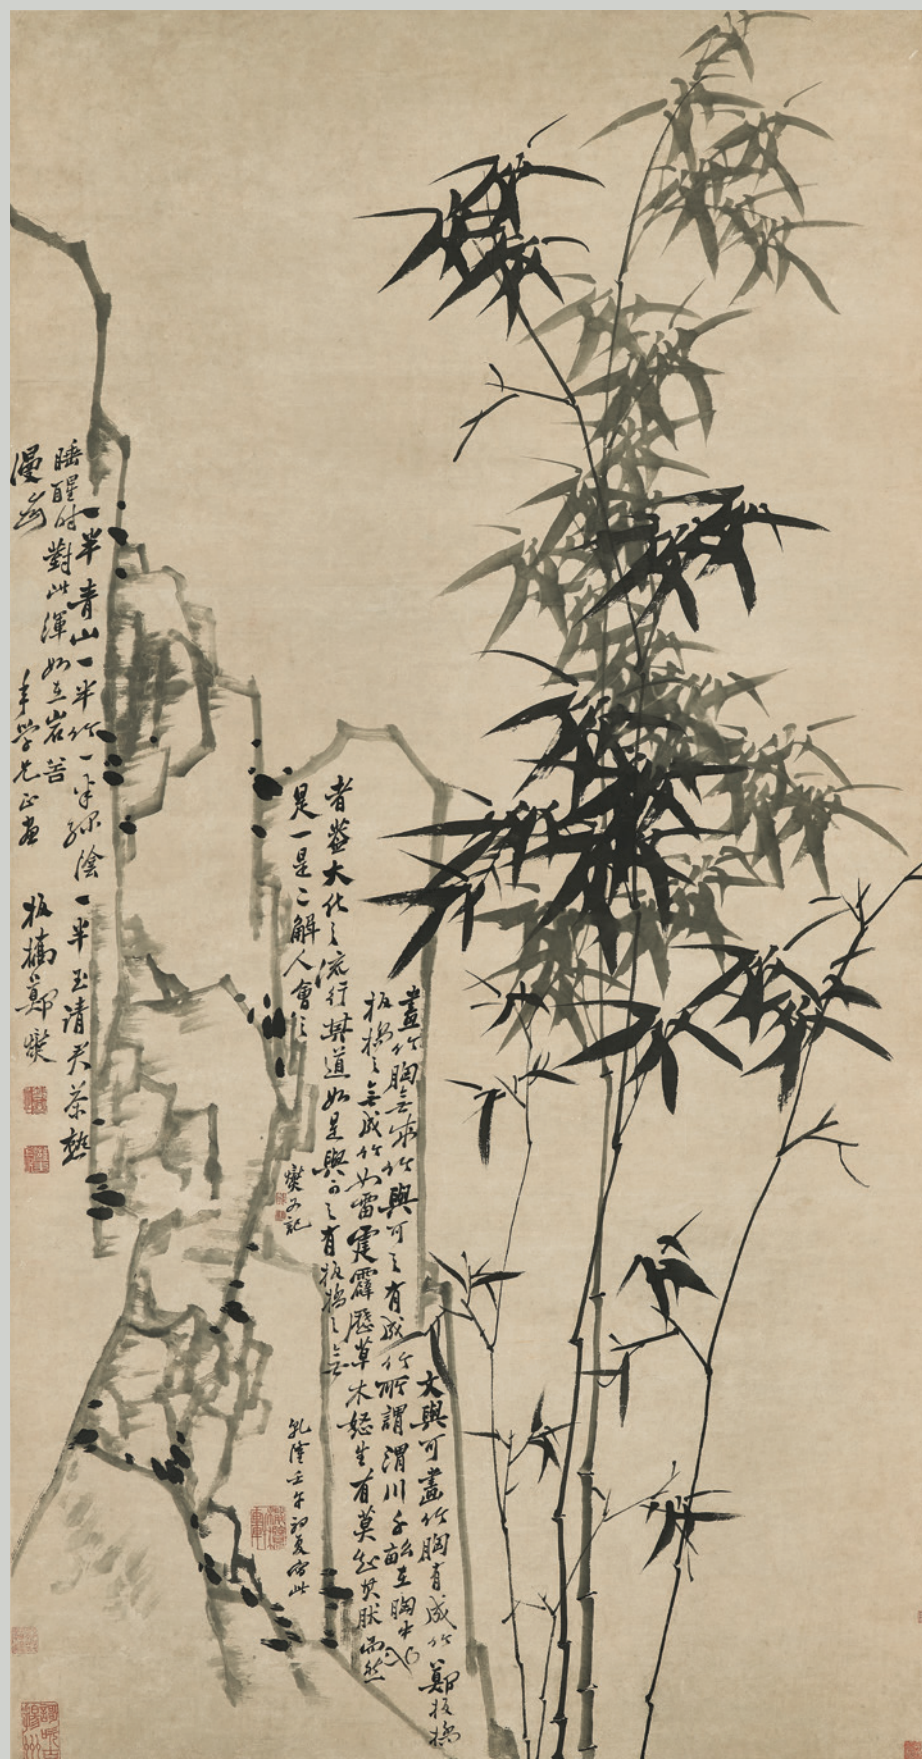 文與可畫竹胸有成竹鄭板橋
畫竹胸無成竹與可之有成竹所謂渭川千畝在胸中也
板橋之無成竹如雷霆霹歷草木怒生有莫知其然而然
者蓋大化之流行其道如是與可之有板橋之無
是一是二解人會之
燮又記
乾隆壬午初夏寫此
一半青山一半竹一半綠陰一半玉請君茶熟
睡醒時對此渾如在岩谷
漫 年學兄正畫
板橋鄭燮